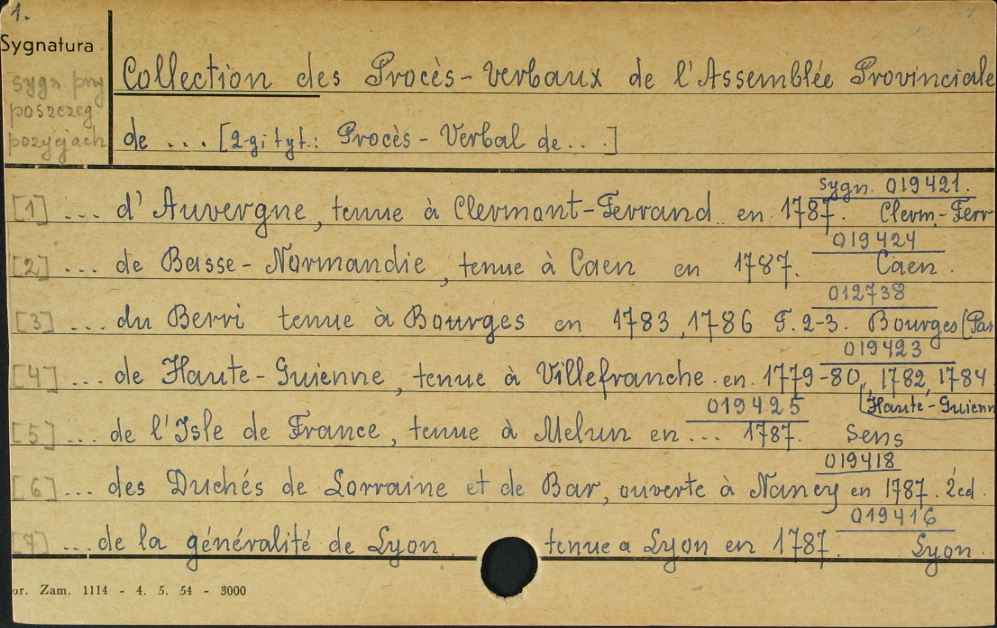 1.
Sygnatura
sygn przy
poszczeg
pozycjach
Collection des Procès-verbaux de l'Assemblée Provinciale
de ... [2-gi tyt.: Procès-Verbal de...]
sygn. 019421.
[1] ... d'Auvergne, tenue à Clermont-Ferrand en 1787. Clerm-Ferr
019424
[2] ... de Basse-Normandie, tenue à Caen en 1787. Caen.
012738
[3] ... du Berri tenue à Bourges en 1783, 1786 T. 2-3. Bourges (Par
019423
[4] ... de Haute-Guienne, tenue à Villefranche en 1779-80, 1782, 1784
019425 (Haute-Guienn
[5] ... de l'Isle de France, tenue à Melun en ... 1787. Sens
019418
[6] ... des Duchés de Lorraine et de Bar, ouverte à Nancy en 1787. 2éd.
019416
[7] ... de la généralité de Lyon tenue a Lyon en 1787. Lyon.
or. Zam. 1114 - 4. 5. 54 - 3000